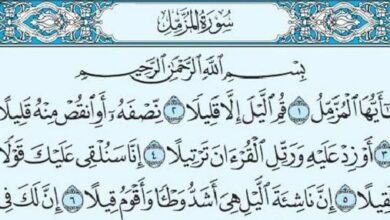 سُورَةُ المُزَّمِّل
بِسْمِ اللَّهِ الرَّحْمَٰنِ الرَّحِيمِ
يَٰٓأَيُّهَا ٱلْمُزَّمِّلُ ١ قُمِ ٱلَّيْلَ إِلَّا قَلِيلًا ٢ نِّصْفَهُۥٓ أَوِ ٱنقُصْ مِنْهُ قَلِيلًا
٣ أَوْ زِدْ عَلَيْهِ وَرَتِّلِ ٱلْقُرْءَانَ تَرْتِيلًا ٤ إِنَّا سَنُلْقِى عَلَيْكَ قَوْلًا
٥ إِنَّ نَاشِئَةَ ٱلَّيْلِ هِىَ أَشَدُّ وَطْـًٔا وَأَقْوَمُ قِيلًا ٦ إِنَّ لَكَ فِى